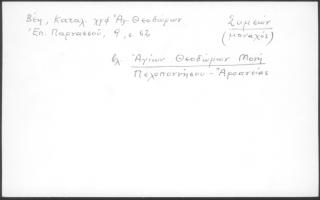 Βέη, Καταλ. χγφ Ἁγ. Θεοδώρων
Ἐπ. Παρνασσοῦ, 9, σ. 62
Συμεών
(μοναχός)
βλ. Ἁγίων Θεοδώρων Μονή
Πελοποννήσου - Ἀροανείας